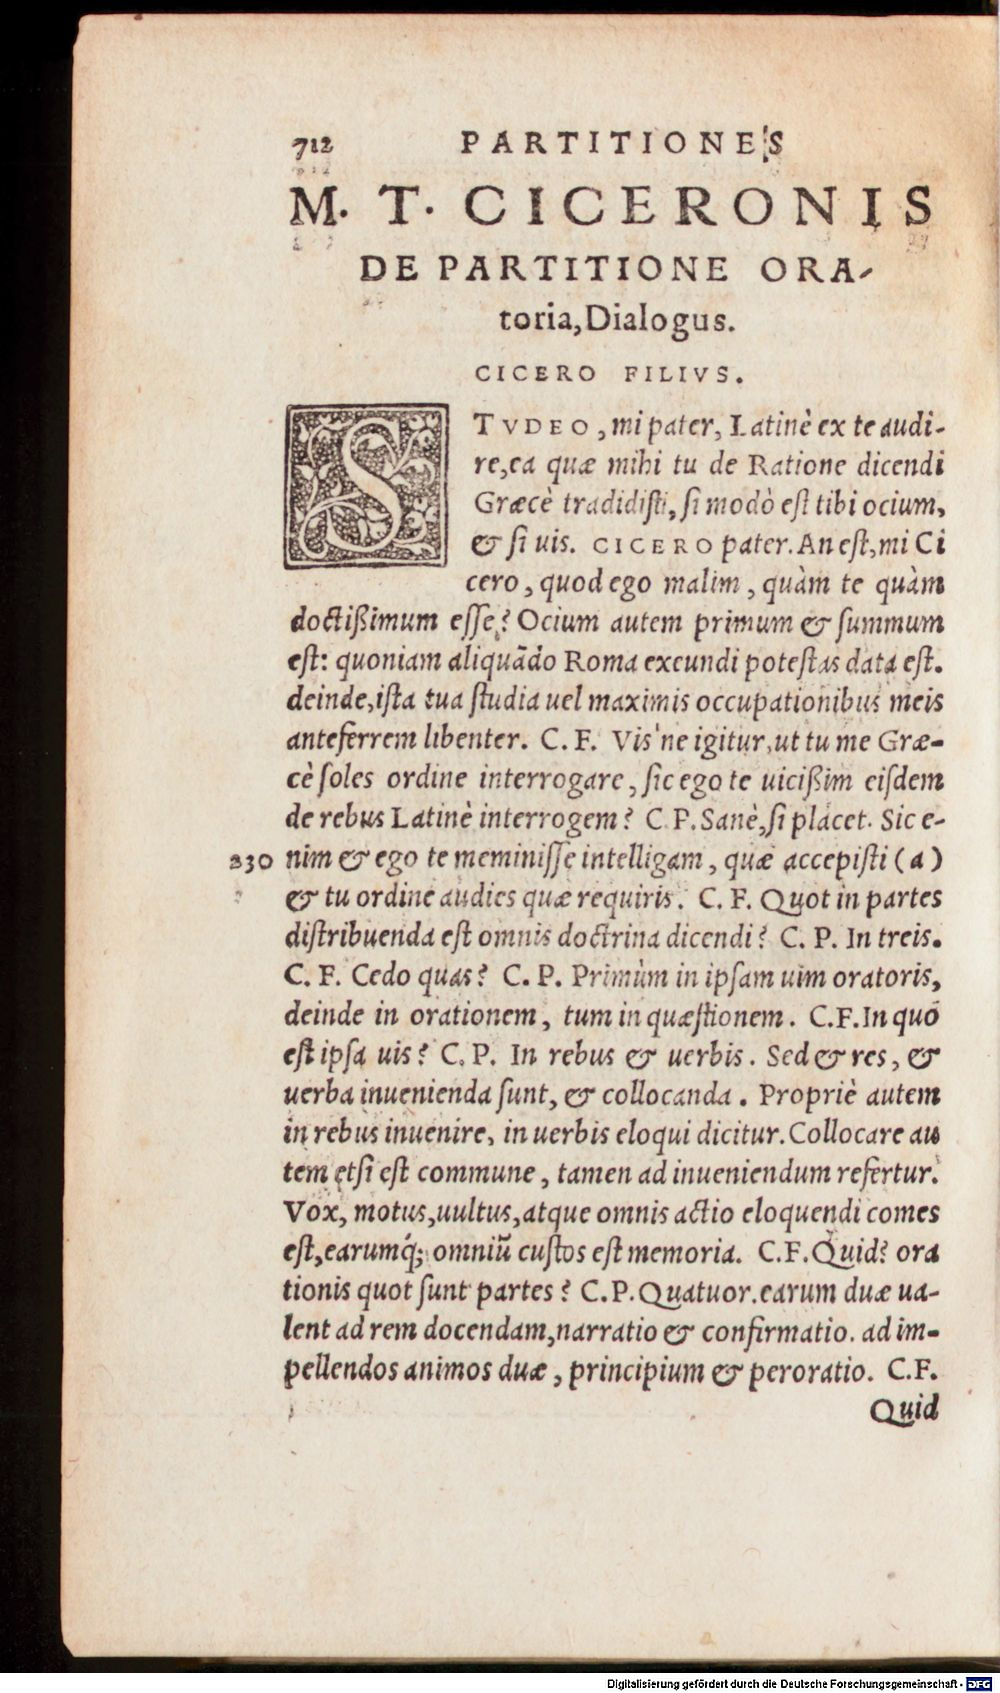 712 PARTITIONES
M. T. CICERONIS
DE PARTITIONE ORA-
toria, Dialogus.
CICERO FILIVS.
STVDEO, mi pater, Latinè ex te audi-
re, ea quæ mihi tu de Ratione dicendi
Græcè tradidisti, si modò est tibi ocium,
& si uis. CICERO pater. An est, mi Ci
cero, quod ego malim, quàm te quàm
doctißimum esse? Ocium autem primum & summum
est: quoniam aliquãdo Roma exeundi potestas data est.
deinde, ista tua studia uel maximis occupationibus meis
anteferrem libenter. C. F. Vis'ne igitur, ut tu me Græ-
cè soles ordine interrogare, sic ego te uicißim eisdem
de rebus Latinè interrogem? C. P. Sanè, si placet. Sic e-
230 nim & ego te meminisse intelligam, quæ accepisti (a)
& tu ordine audies quæ requiris. C. F. Quot in partes
distribuenda est omnis doctrina dicendi? C. P. In treis.
C. F. Cedo quas? C. P. Primùm in ipsam uim oratoris,
deinde in orationem, tum in quæstionem. C.F. In quo
est ipsa uis? C. P. In rebus & uerbis. Sed & res, &
uerba inuenienda sunt, & collocanda. Propriè autem
in rebus inuenire, in uerbis eloqui dicitur. Collocare au
tem etsi est commune, tamen ad inueniendum refertur.
Vox, motus, uultus, atque omnis actio eloquendi comes
est, earumq́; omniũ custos est memoria. C.F. Quid? ora
tionis quot sunt partes? C.P. Quatuor. earum duæ ua-
lent ad rem docendam, narratio & confirmatio. ad im-
pellendos animos duæ, principium & peroratio. C.F.
Quid
Digitalisierung gefördert durch die Deutsche Forschungsgemeinschaft - DFG